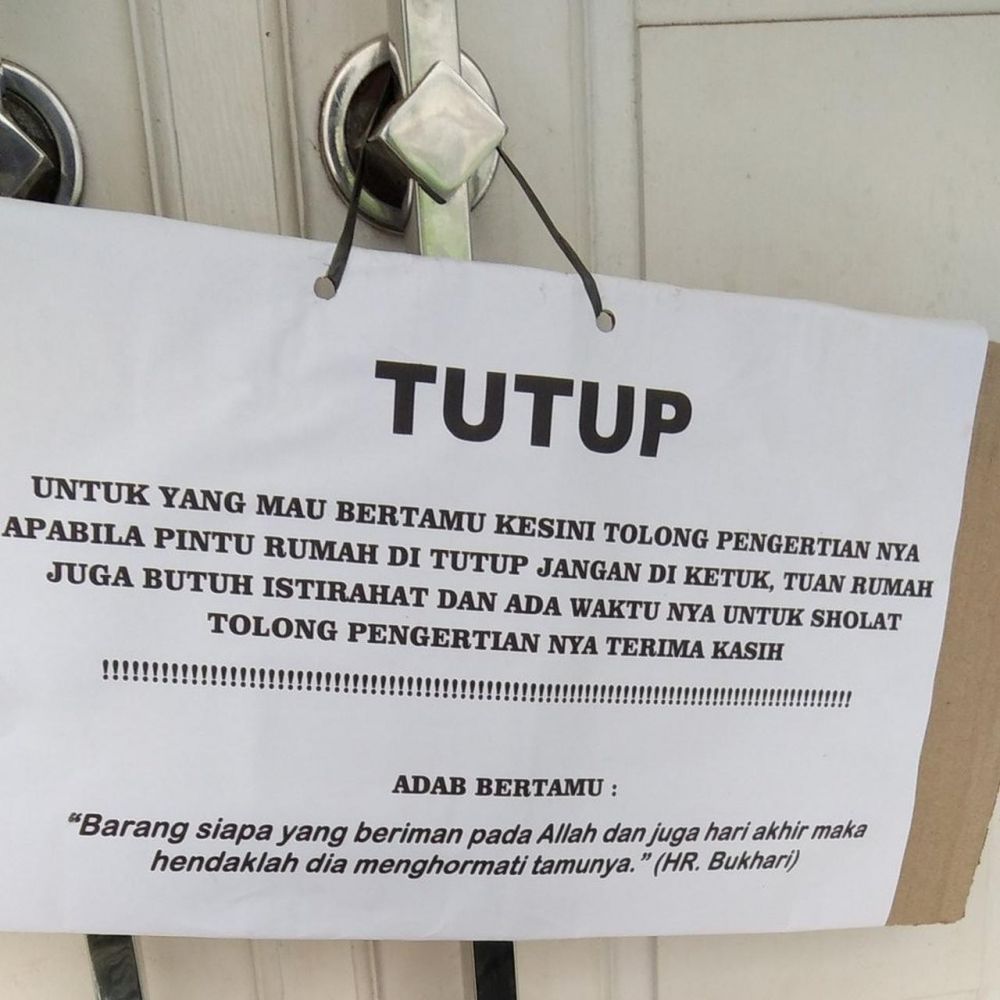 TUTUP
UNTUK YANG MAU BERTAMU KESINI TOLONG PENGERTIAN NYA
APABILA PINTU RUMAH DI TUTUP JANGAN DI KETUK, TUAN RUMAH
JUGA BUTUH ISTIRAHAT DAN ADA WAKTU NYA UNTUK SHOLAT
TOLONG PENGERTIAN NYA TERIMA KASIH
!!!!!!!!!!!!!!!!!!!!!!!!!!!!!!!!!!!!!!!!!!!!!!!!!!!!!!!!!!!!!!!!!!!!!!!!!!!!!!!!!!!!!!
ADAB BERTAMU :
“Barang siapa yang beriman pada Allah dan juga hari akhir maka
hendaklah dia menghormati tamunya.” (HR. Bukhari)